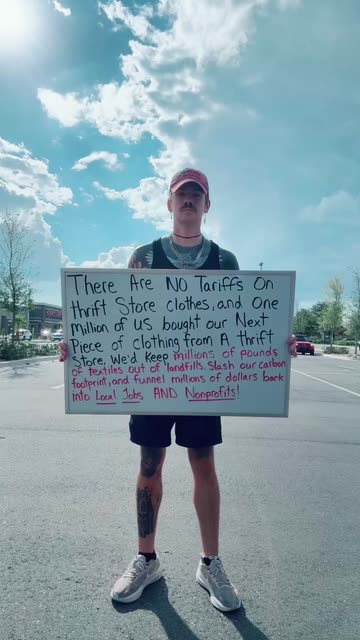 There Are NO Tariffs On
thrift Store clothes, and One
Million of US bought our Next
Piece of clothing from A thrift
Store, We'd Keep millions of pounds
of textiles out of landfills, Slash our carbon
footprint, and funnel millions of dollars back
into Local Jobs AND Nonprofits!